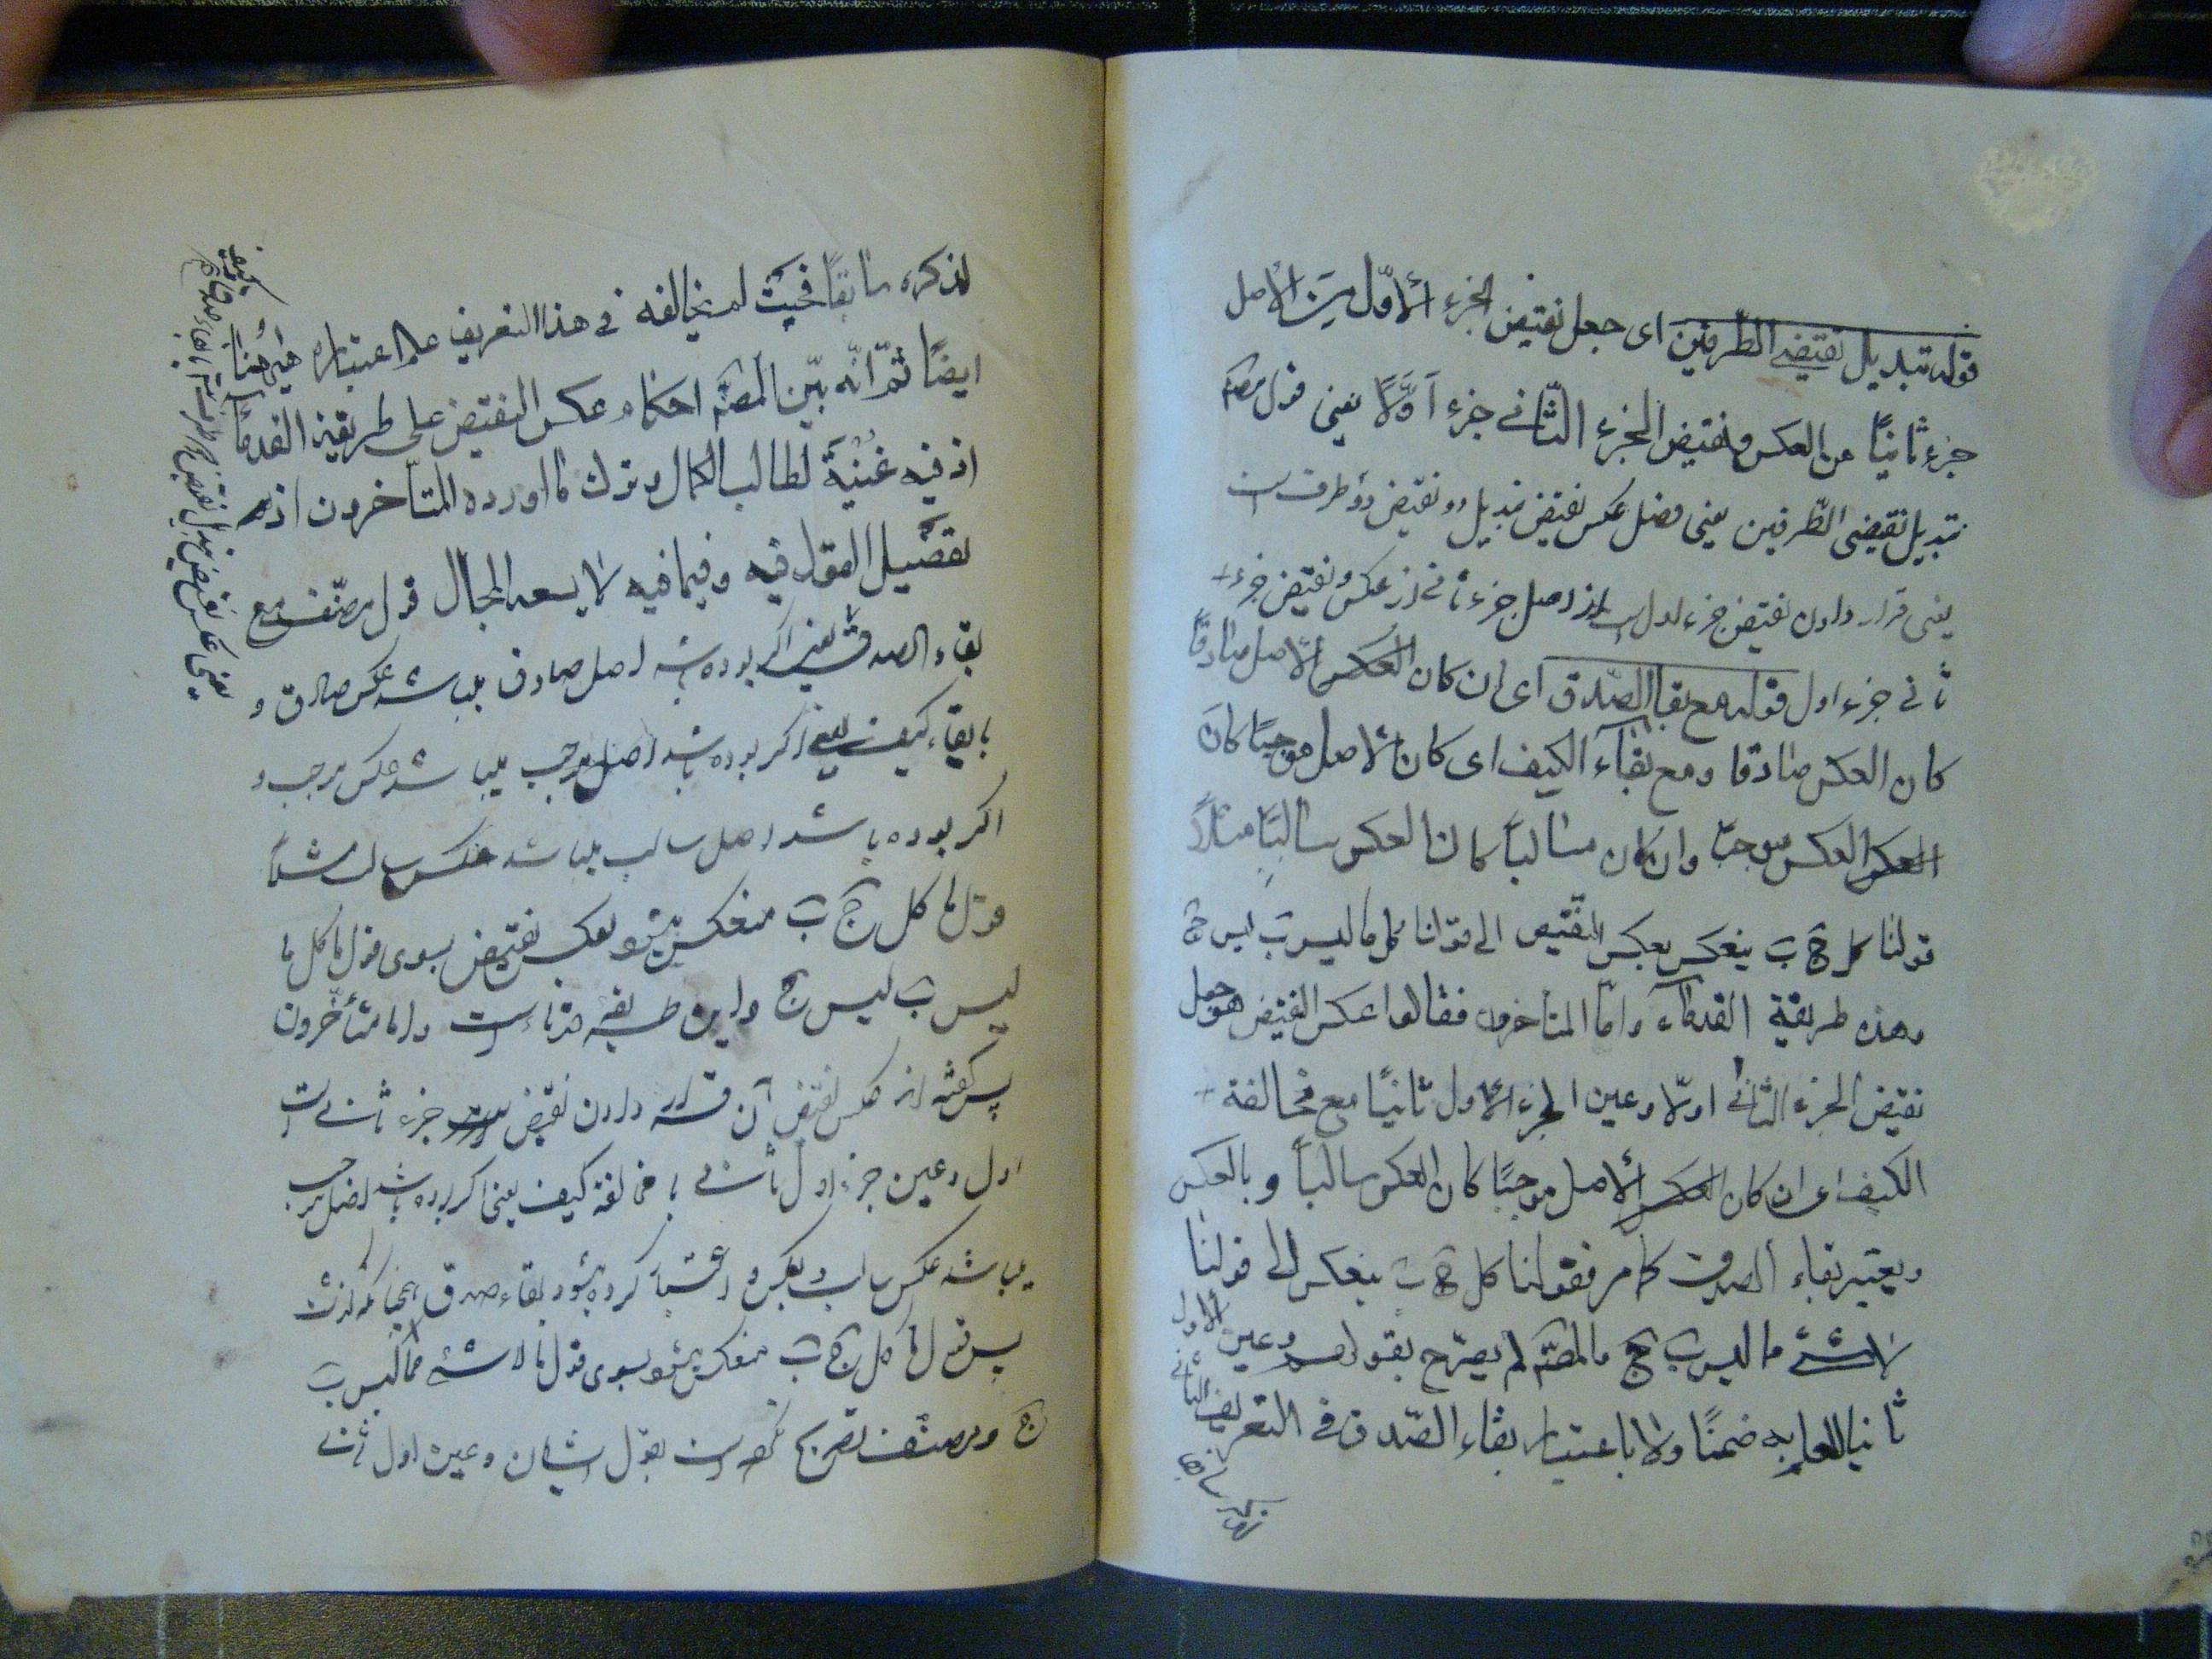 قوله تبديل نقيضى الطّرفين اى جعل نقيض الجزء الأوّل من الأصل
جزء ثانيًا من العكس ونقيض الجزء الثّانى جزء اَوّلًا يعنى قول مصنّف
تبديل نقيضى الطّرفين يعنى فصل عكس نقيض تبديل دو نقيض دو طرف است
يعنى قرار دادن نقيض جزء اول از اصل جزء ثانى از عكس و نقيض جزء
ثانى جزء اول قوله مع بقاء الصّدق اى ان كان العكس الأصل صادقًا
كان العكس صادقا ومع بقاء الكيف اى كان الأصل موجبًا كان
العكس العكس موجبًا وان كان سالبًا كان العكس سالبًا مثلًا
قولنا كل ج ب ينعكس بعكس النّقيض الى قولنا كل ما ليس ب ليس ج
وهذه طريقة القدماء وامّا المتأخرون فقالوا عكس النقيض هو جعل
نقيض الجزء الثانى اوّلا وعين الجزء الأول ثانيًا مع مخالفة
الكيف اى ان كان العكس الأصل موجبًا كان العكس سالبًا وبالعكس
ويعتبر بقاء الصدق كما مر فقولنا كل ج ب ينعكس الى قولنا
لا شىء مما ليس ب ج والمصنّف لم يصرّح بقولهم وعين الأول
ثانيا للعلم به ضمنًا ولا باعتبار بقاء الصّدق فى التعريف الثانى
لذكره سابقا
لذكره سابقًا فحيث لم يخالفه فى هذا التعريف علم اعتباره هيهنا
ايضًا ثمّ انّه بيّن المصنّف احكام عكس النقيض على طريقة القدماء
اذ فيه غُنيَة لطالب الكمال وترك ما اورده المتأخرون اذ
تفصيل القول فيه وفيما فيه لا يسعه المجال قول مصنّف مع
بقاء الصدق يعنى اگر بوده باشد اصل صادق ميباشد عكس صادق و
با بقاء كيف يعنى اگر بوده باشد اصل موجب ميباشد عكس موجب و
اگر بوده باشد اصل سالب ميباشد عكس سالب مثلًا
قول ما كل ج ب منعكس ميشود بعكس نقيض بسوى قول ما كل ما
ليس ب ليس ج و اين طريقه قدماء است و اما متأخّرون
پس گفته‌اند عكس نقيض آن قرار دادن نقيض جزء ثانى است
اول و عين جزء اول ثانى با مخالفة كيف يعنى اگر بوده باشد اصل موجب
ميباشد عكس سالب و بعكس و اعتبار كرده ميشود بقاء صدق همچنانكه گذشت
پس قول ما كل ج ب منعكس ميشود بسوى قول ما لا شىء مما ليس ب
ج و مصنّف تصريح نكرده است بقول ايشان و عين اول ثانى